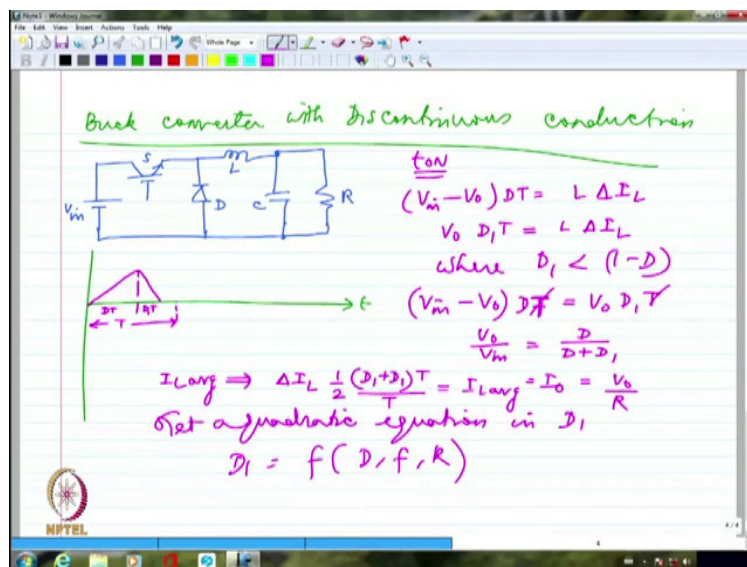 Note1 - Windows Journal
File Edit View Insert Actions Tools Help
Whole Page
Buck converter with Discontinuous conduction
S
L
Vin
D
C
R
tON
(Vin − Vo) DT = L ΔIL
Vo D1T = L ΔIL
where D1 < (1 − D)
(Vin − Vo) DT = Vo D1T
Vo/Vin = D/(D + D1)
DT D1T
T
t
ILavg ⇒ ΔIL 1/2 (D1 + D1)T/T = ILavg = Io = Vo/R
Get a quadratic equation in D1
D1 = f(D, f, R)
NPTEL
4 / 4
4